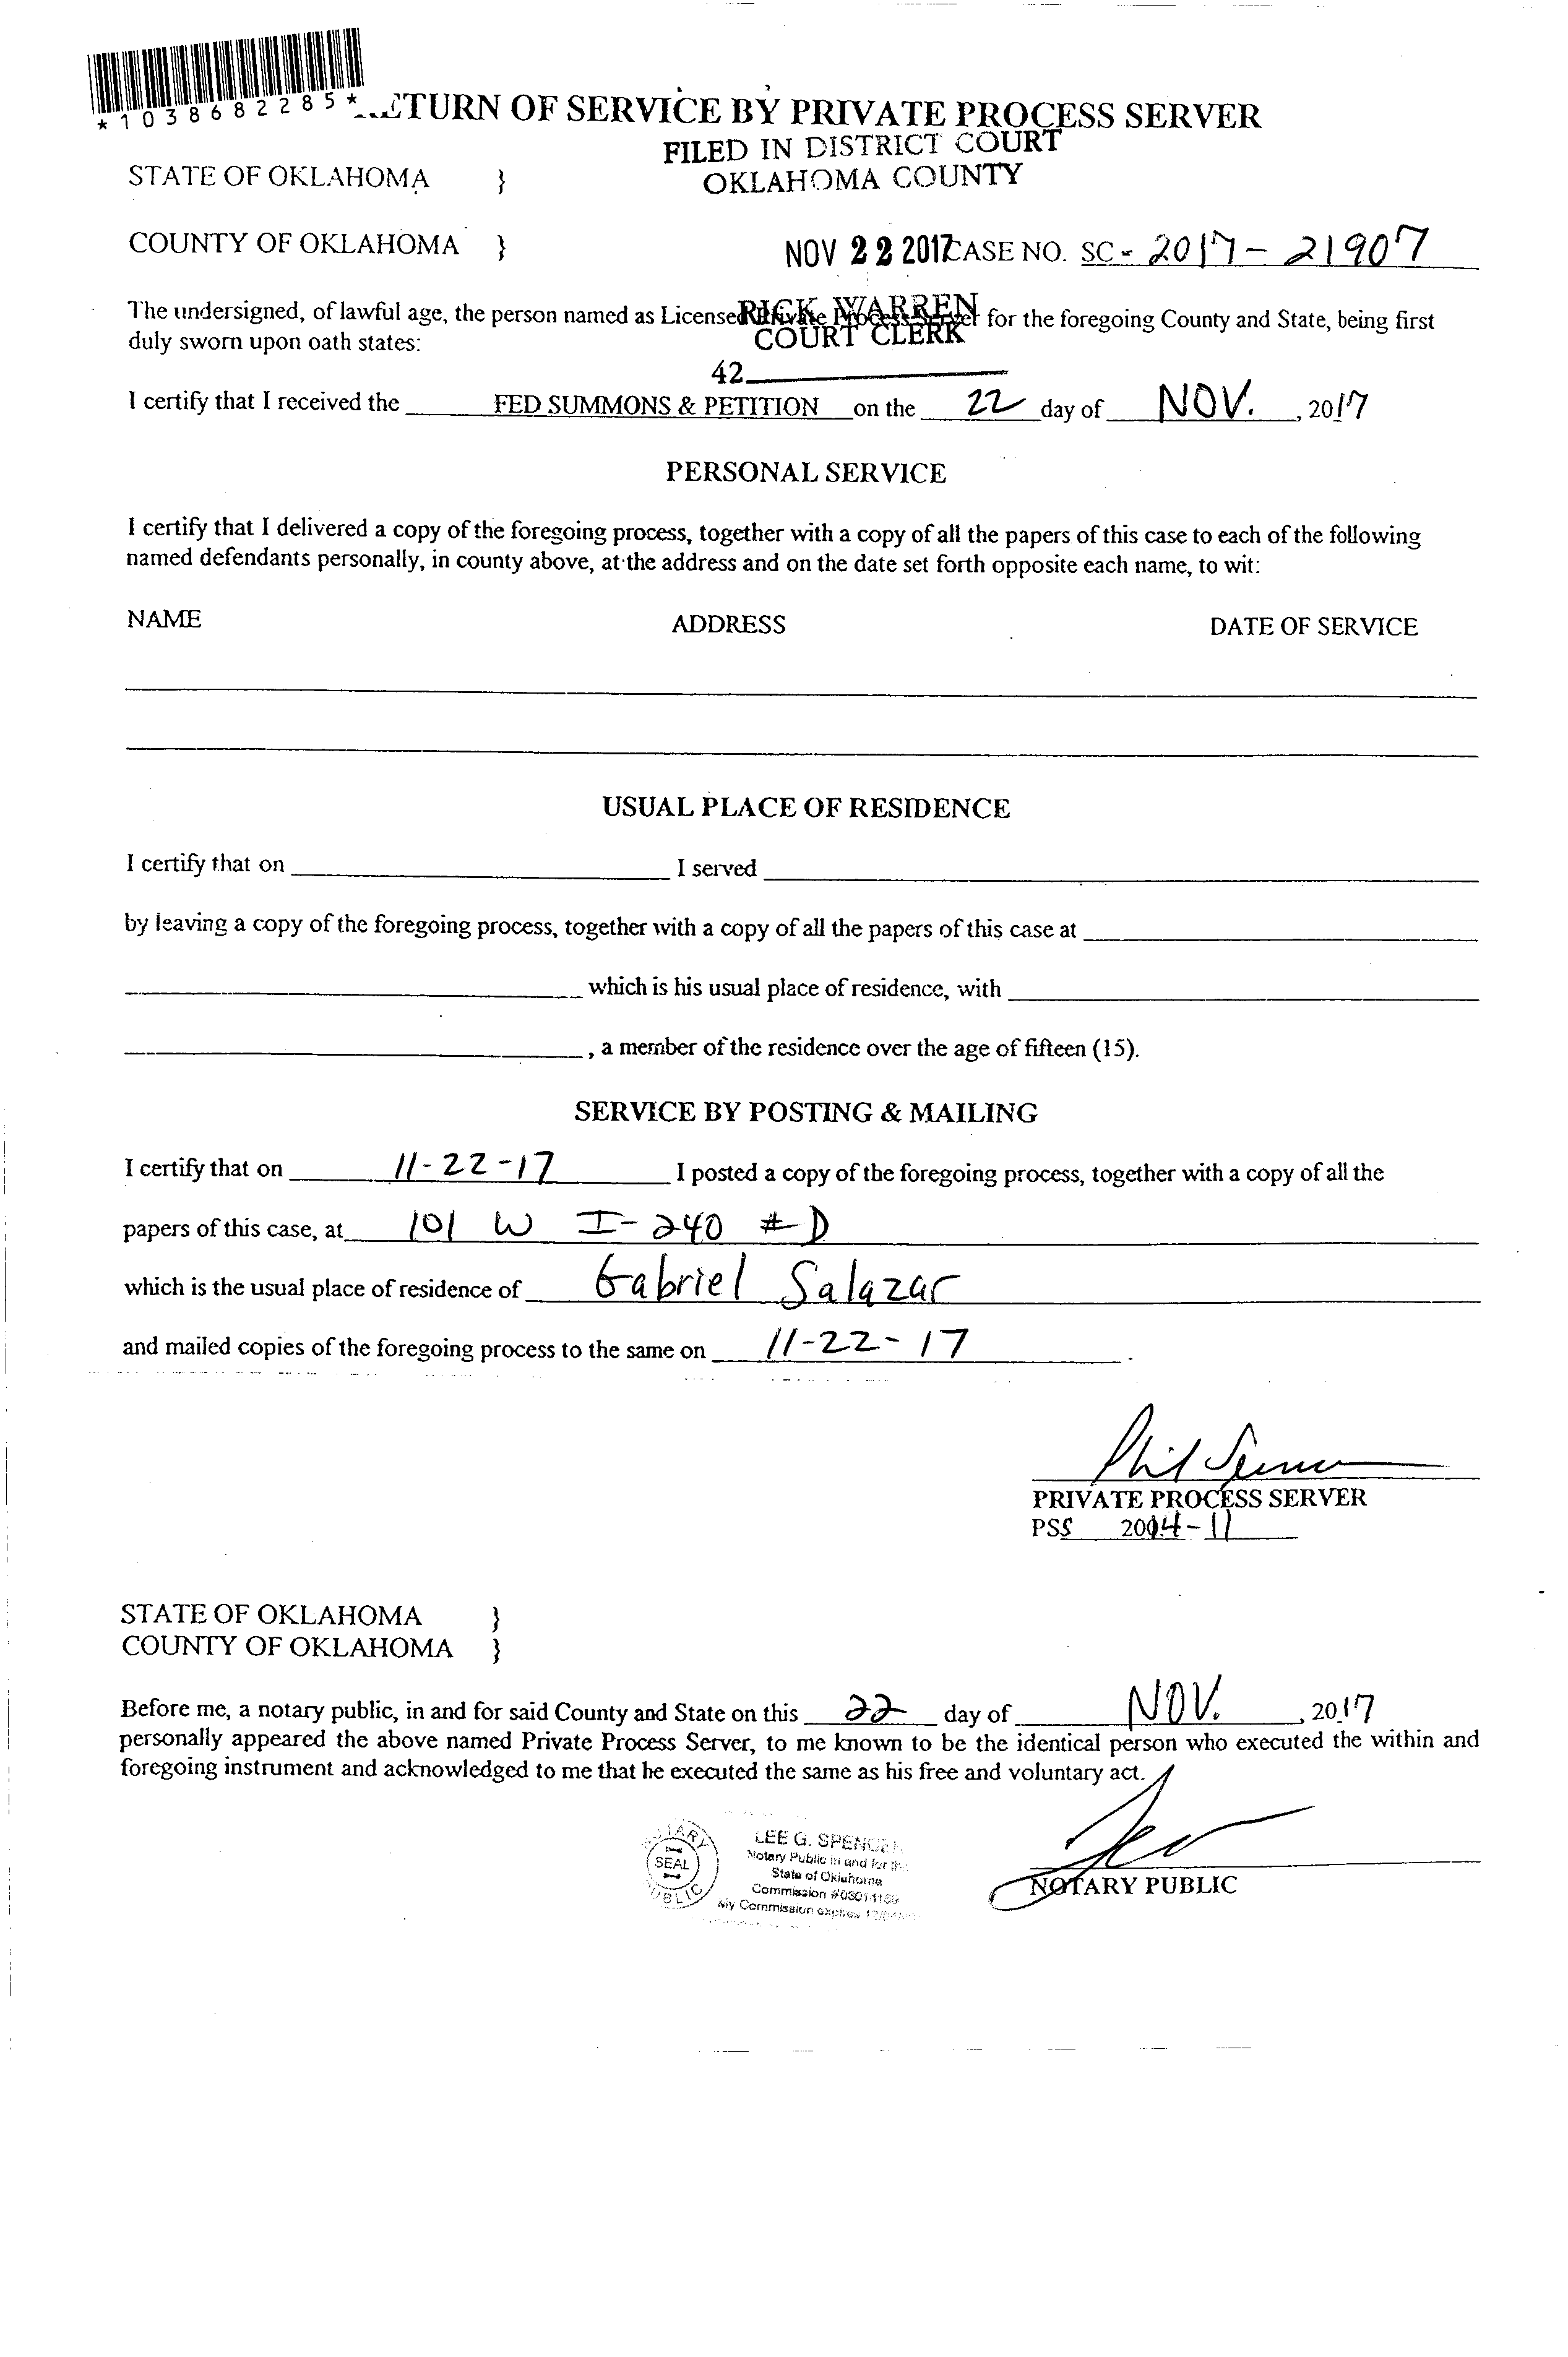 *1038682285*
TURN OF SERVICE BY PRIVATE PROCESS SERVER
FILED IN DISTRICT COURT
STATE OF OKLAHOMA }
OKLAHOMA COUNTY
COUNTY OF OKLAHOMA }
NOV 22 2017 CASE NO. SC - 2017 - 21907
The undersigned, of lawful age, the person named as Licensed Private Process Server for the foregoing County and State, being first
RICK WARREN
duly sworn upon oath states:
COURT CLERK
42
I certify that I received the FED SUMMONS & PETITION on the 22 day of NOV. , 2017
PERSONAL SERVICE
I certify that I delivered a copy of the foregoing process, together with a copy of all the papers of this case to each of the following
named defendants personally, in county above, at the address and on the date set forth opposite each name, to wit:
NAME ADDRESS DATE OF SERVICE
USUAL PLACE OF RESIDENCE
I certify that on I served
by leaving a copy of the foregoing process, together with a copy of all the papers of this case at
which is his usual place of residence, with
, a member of the residence over the age of fifteen (15).
SERVICE BY POSTING & MAILING
I certify that on 11-22-17 I posted a copy of the foregoing process, together with a copy of all the
papers of this case, at 101 W I-240 # D
which is the usual place of residence of Gabriel Salazar
and mailed copies of the foregoing process to the same on 11-22-17 .
PRIVATE PROCESS SERVER
PSS -11
STATE OF OKLAHOMA }
COUNTY OF OKLAHOMA }
Before me, a notary public, in and for said County and State on this 22 day of NOV. , 2017
personally appeared the above named Private Process Server, to me known to be the identical person who executed the within and
foregoing instrument and acknowledged to me that he executed the same as his free and voluntary act.
LEE G.
Notary Public in and for the
SEAL
State of Oklahoma
Commission
My Commission expires
NOTARY PUBLIC